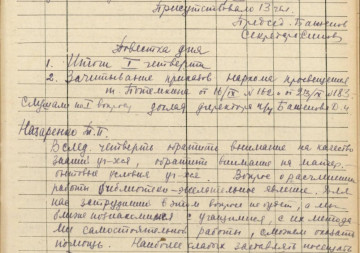 Присутствовало 13 чел.
Председ. Баженов
Секретарь
Повестка дня
1. Итоги I четверти
2. Зачитывание приказов наркома просвещения
т. Потемкина от 16/IX № 162 и от 25/IX № 183
Слушали по I вопросу доклад директора Баженова Д.
Назаренко П.П.
В след. четверти обратить внимание на качество
знаний уч-хся, обратить внимание на матер.
бытовые условия уч-хся. Вопрос о расчленении
работы явление. Для
нас затруднений в этом вопросе не будет, а мы
ближе познакомимся с учащимися, с их метода
ми самостоятельной работы, сможем оказать
помощь. Наиболее слабых заставлять посещать